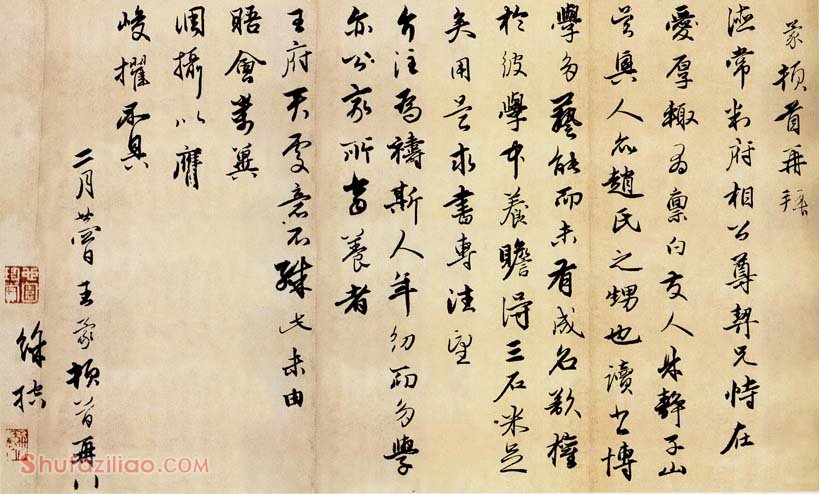 蒙頓首再拜
德常判府相公尊契兄恃在
愛厚輒有禀白友人朱靜子山
吳興人亦趙氏之甥也讀書博
學多藝能而未有成名欲權
於彼學中養贍得三石米足
矣用是求書專注望
介注為禱斯人年幼而多學
亦公家所當養者
王府天處意不殊此未由
晤會萬冀
調攝以膺
峻擢不具
二月廿四日王蒙頓首再拜
徐
Shufaziliao.COM